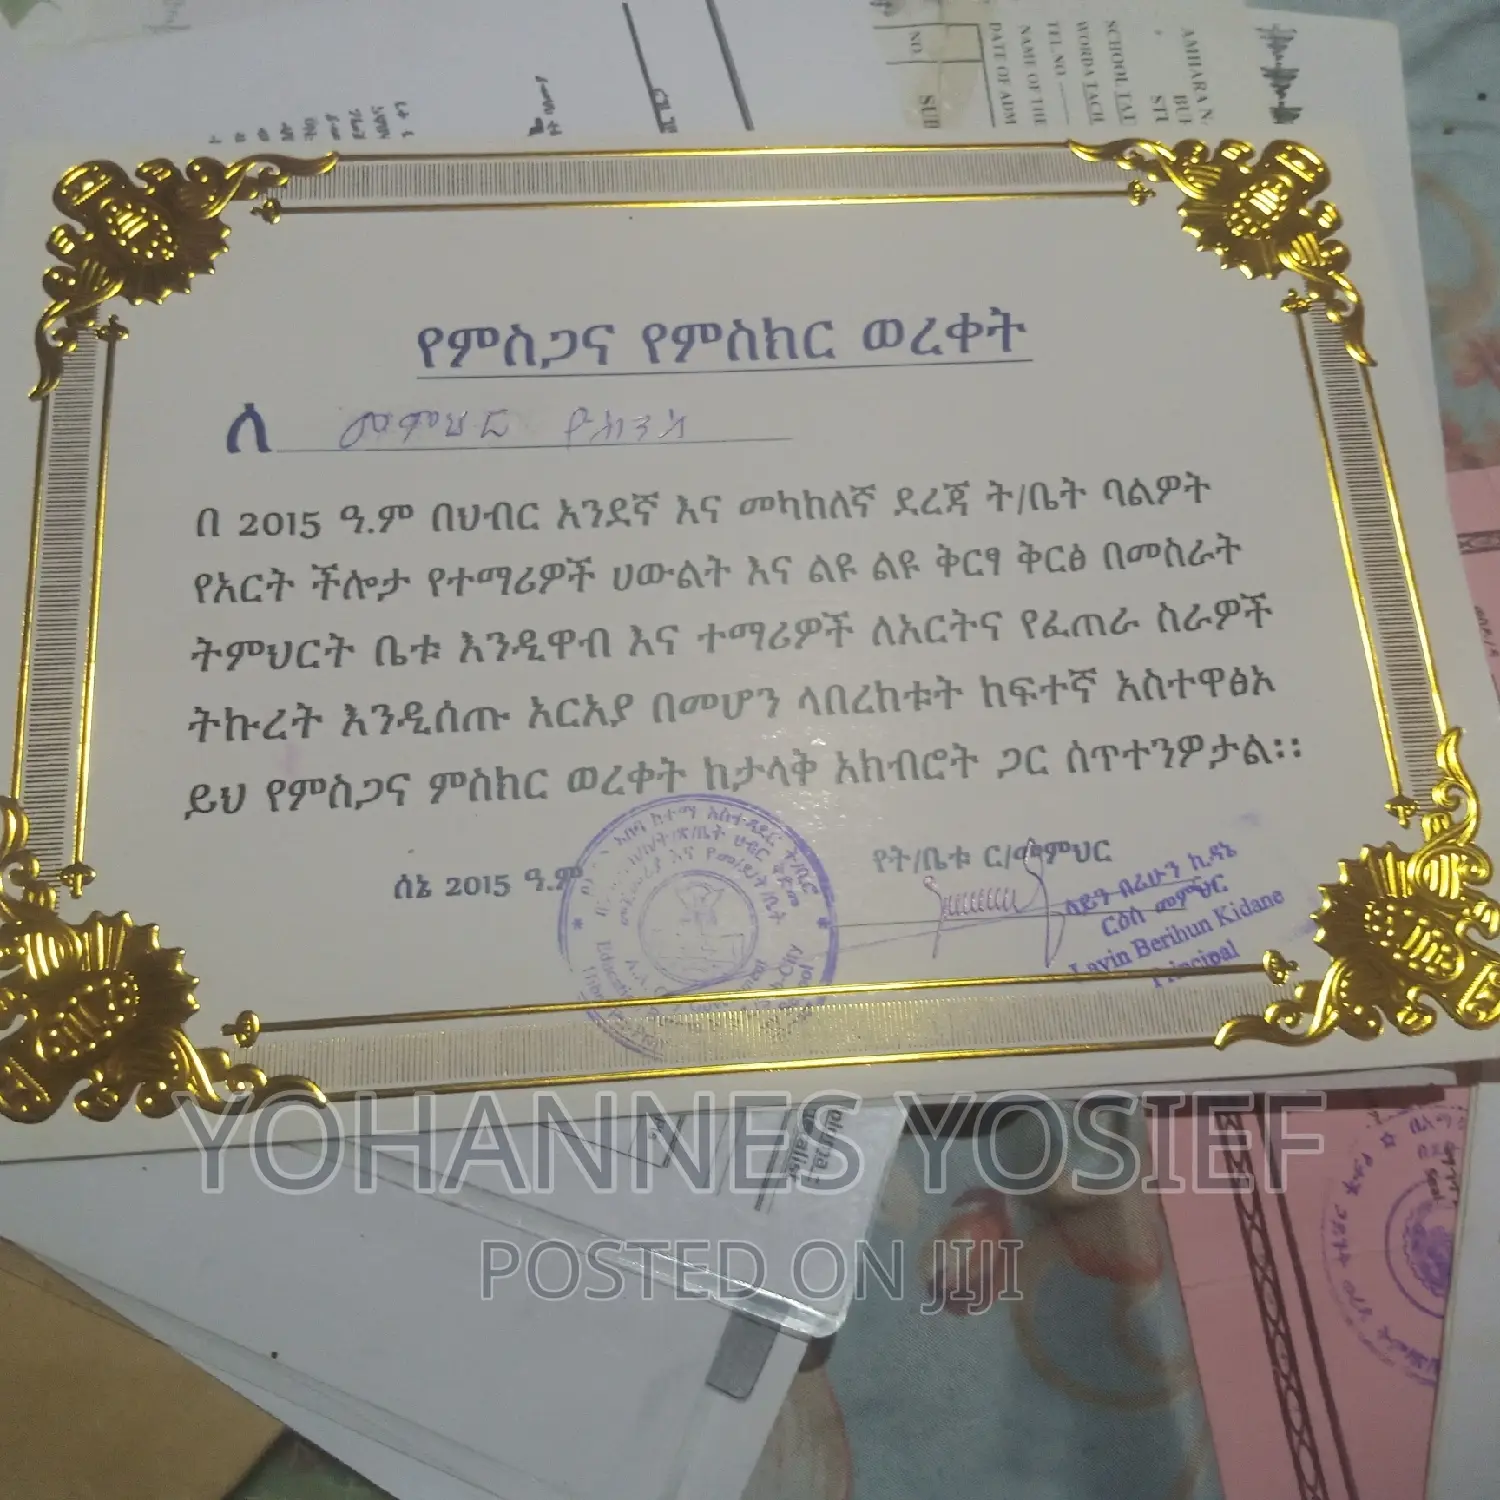 AMHARA N
SCHOOL
TEL.NO
NAME OF THE
DATE OF ADM
NO
SUB
የምስጋና የምስክር ወረቀት
ለ መምህር ዮሐንስ
በ 2015 ዓ.ም በህብር አንደኛ እና መካከለኛ ደረጃ ት/ቤት ባልዎት
የአርት ችሎታ የተማሪዎች ሀውልት እና ልዩ ልዩ ቅርፃ ቅርፅ በመስራት
ትምህርት ቤቱ እንዲዋብ እና ተማሪዎች ለአርትና የፈጠራ ስራዎች
ትኩረት እንዲሰጡ አርአያ በመሆን ላበረከቱት ከፍተኛ አስተዋፅኦ
ይህ የምስጋና ምስክር ወረቀት ከታላቅ አክብሮት ጋር ሰጥተንዎታል፡፡
ሰኔ 2015 ዓ.ም
የት/ቤቱ ር/መምህር
ላይን በሪሁን ኪዳኔ
ርዕሰ መምህር
Layin Berihun Kidane
Principal
YOHANNES YOSIEF
POSTED ON JIJI